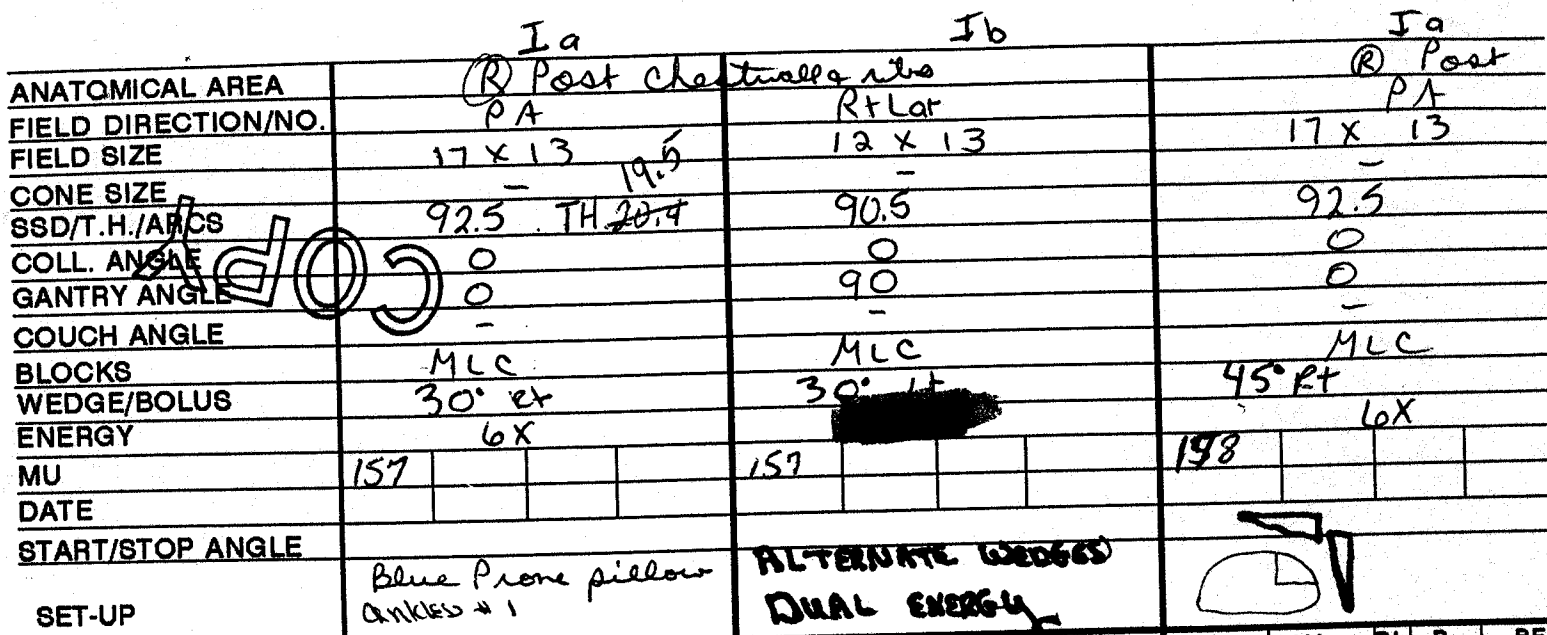 Ia Ib Ia
ANATOMICAL AREA Ⓡ Post Chestwall & ribs Ⓡ Post
FIELD DIRECTION/NO. PA Rt Lat PA
FIELD SIZE 17 X 13 12 X 13 17 X 13
CONE SIZE - 19.5 - -
SSD/T.H./ARCS 92.5 TH 20.4 90.5 92.5
COLL. ANGLE 0 0 0
GANTRY ANGLE 0 90 0
COPY
COUCH ANGLE - - -
BLOCKS MLC MLC MLC
WEDGE/BOLUS 30° Rt 30° Lt 45° Rt
ENERGY 6X 6X
MU 157 157
DATE
START/STOP ANGLE
SET-UP Blue Prone pillow ALTERNATE WEDGES
ankles # 1 DUAL ENERGY